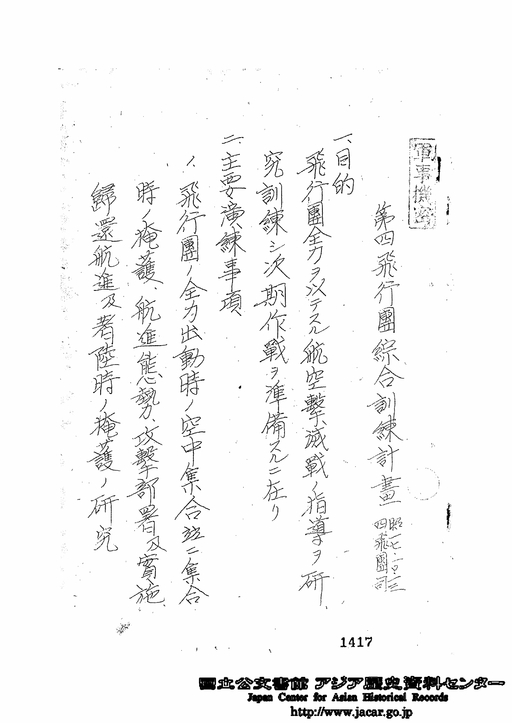 軍事機密
第四飛行團綜合訓練計畫
四飛團司
一、目的
飛行團全力ヲ以テスル航空擊滅戰ノ指導ヲ研
究訓練シ次期作戰ヲ準備スルニ在リ
二、主要演練事項
1、飛行團ノ全力出動時ノ空中集合並ニ集合
時ノ掩護、航進態勢、攻擊部署及實施
歸還航進及著陸時ノ掩護ノ研究
1417
国立公文書館 アジア歴史資料センター
Japan Center for Asian Historical Records
http://www.jacar.go.jp